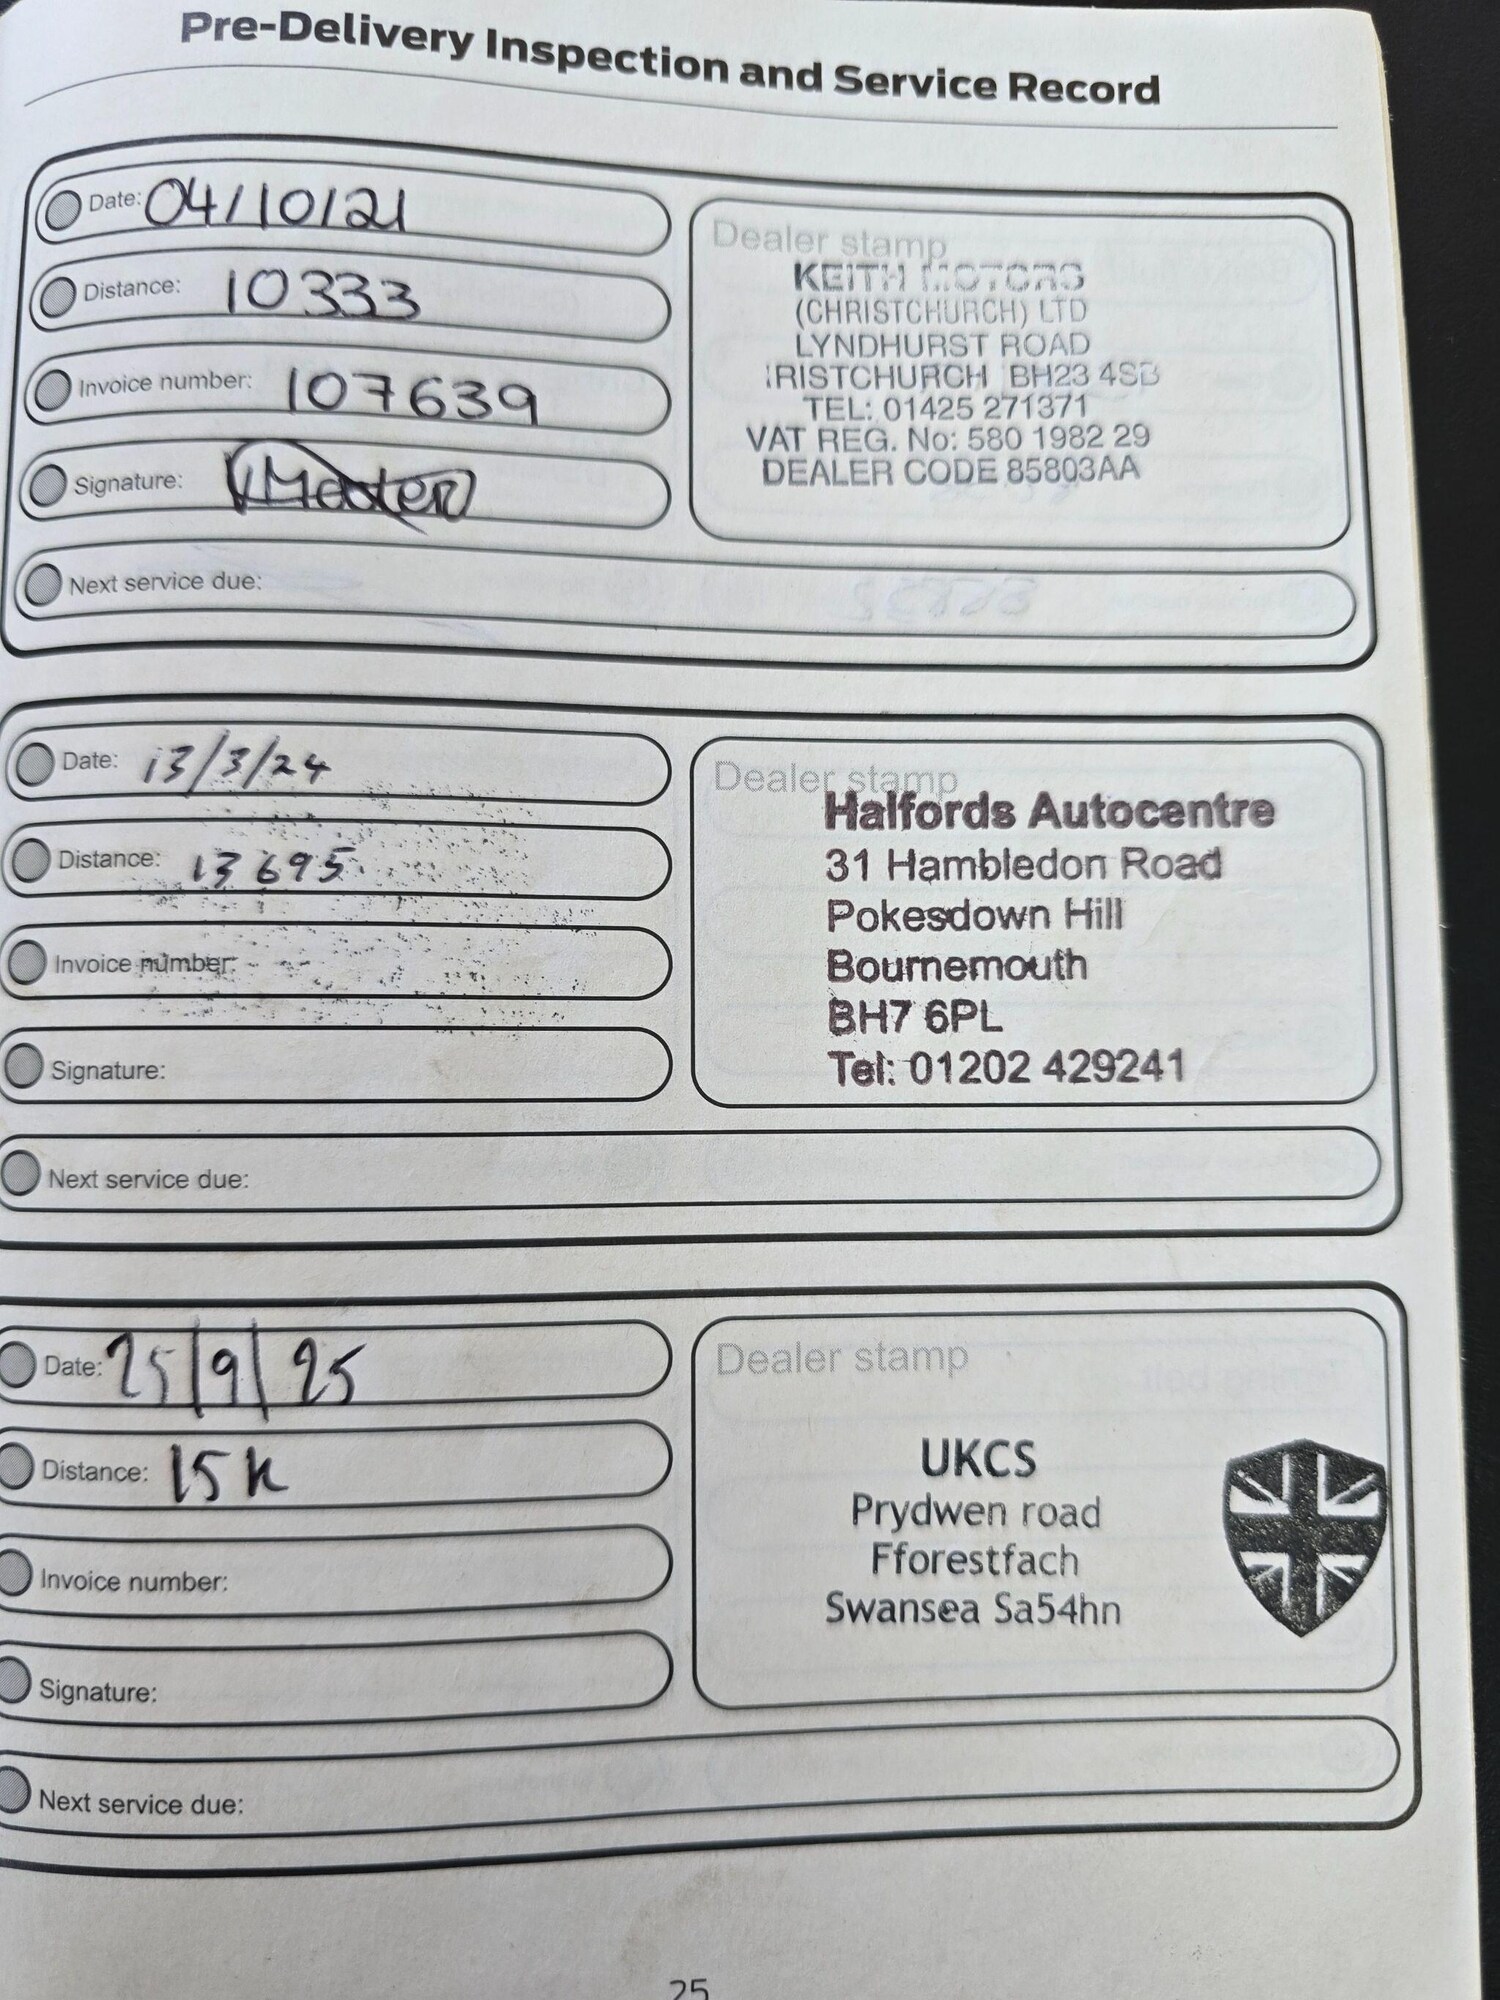 Pre-Delivery Inspection and Service Record
Date: 04/10/21
Distance: 10333
Invoice number: 107639
Signature:
Next service due:
Dealer stamp
KEITH MOTORS
(CHRISTCHURCH) LTD
LYNDHURST ROAD
RISTCHURCH BH23 4SB
TEL: 01425 271371
VAT REG. No: 580 1982 29
DEALER CODE 85803AA
Date: 13/3/24
Distance: 13695
Invoice number:
Signature:
Next service due:
Dealer stamp
Halfords Autocentre
31 Hambledon Road
Pokesdown Hill
Bournemouth
BH7 6PL
Tel: 01202 429241
Date: 25/9/25
Distance: 15K
Invoice number:
Signature:
Next service due:
Dealer stamp
UKCS
Prydwen road
Fforestfach
Swansea Sa54hn
25